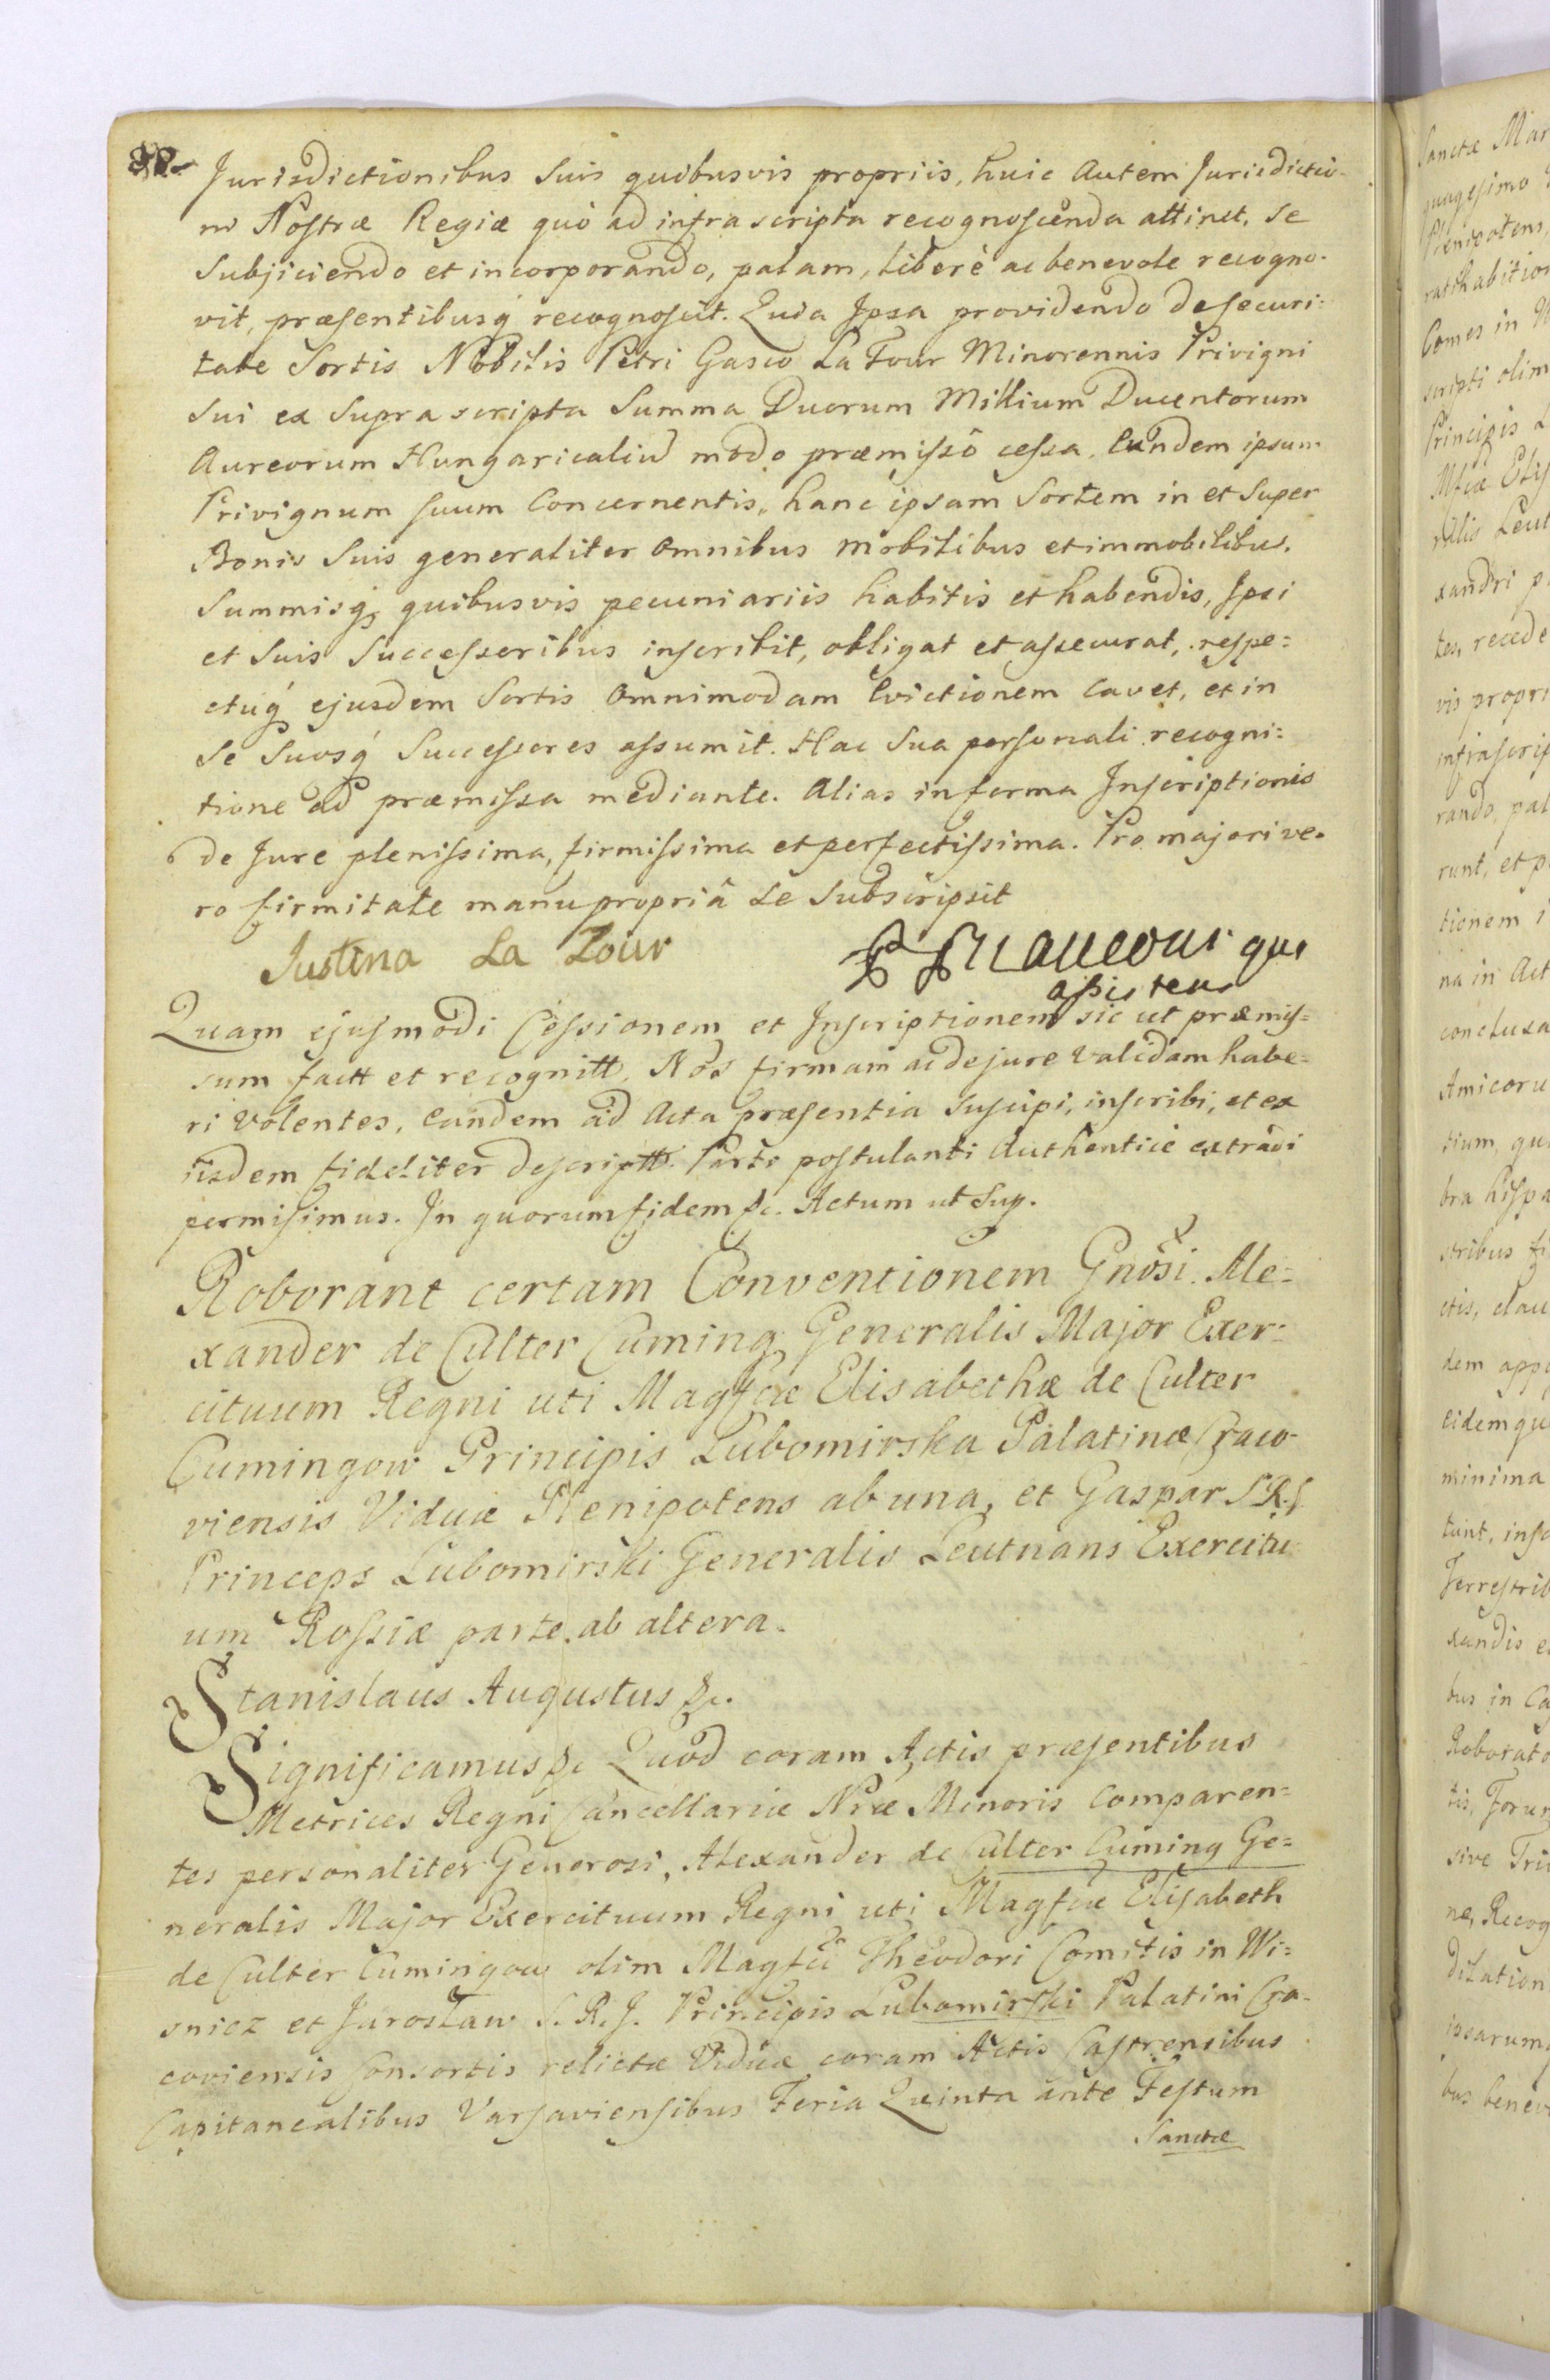 Jurisdictionibus Suis quibusvis propriis, huic Autem Jurisdictio-
ni Nostræ Regiæ quò ad infrascripta recognoscenda attinet, se
Subjiciendo et incorporando, palam, liberè ac benevole recogno-
vit, præsentibusq́ recognoscit. Quia Ipsa providendo de securi=
tate Sortis Nobilis Petri Gasco La Tour Minorennis Privigni
Sui ex Suprascripta Summa Duorum Millium Ducentorum
Aureorum Hungaricaliũ modo præmisso cessa, Eundem ipsum
Privignum suum Concernentis, hanc ipsam Sortem in et Super
Bonis Suis generaliter Omnibus mobilibus et immobilibus,
Summisq́ quibusvis pecuniariis habitis et habendis, Ipsi
et Suis Successoribus inscribit, obligat et assecurat, respe=
ctuq́ ejusdem Sortis Omnimodam Evictionem Cavet, et in
Se Suosq́ Successores assumit. Hac Sua personali recogni=
tione ad præmissa mediante. Alias in forma Inscriptionis
de Jure plenissima, firmissima et perfectissima. Pro majori ve-
ro firmitate manu propriâ Se Subscripsit
Justina La Tour
assistens
Quam ejusmodi Cessionem et Inscriptionem sic ut præmis=
sum factt et recognitt, Nos firmam ac de jure validam habe=
ri Volentes, Eandem ad Acta præsentia Suscipi, inscribi, et ex
iisdem fideliter descriptt. Parti postulanti Authentice extradi
permisimus. In quorum fidem &c. Actum ut Sup.
Roborant certam Conventionem Gnosi Ale=
xander de Culter Cuming Generalis Major Exer=
cituum Regni uti Magfcæ Elisabethæ de Culter
Cumingow Principis Lubomirska Palatinæ Craco-
viensis Viduæ Plenipotens ab una, et Gaspar S.R.I.
Princeps Lubomirski Generalis Leutnans Exercitu-
um Rossiæ parte ab altera.
Stanislaus Augustus &c.
Significamus &c Quod coram Actis præsentibus
Metrices Regni Cancellariæ Nræ Minoris Comparen=
tes personaliter Generosi, Alexander de Culter Cuming Ge=
neralis Major Exercituum Regni uti Magfcæ Elisabeth
de Culter Cumingow olim Magfci Theodori Comitis in Wi=
snicz et Jarosław S.R.J. Principis Lubomirski Palatini Cra-
coviensis Consortis relictæ Viduæ coram Actis Castrensibus
Capitanealibus Varsaviensibus Feria Quinta ante Festum
Sanctæ